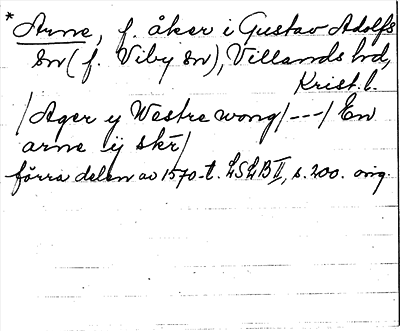 * Arne, f. åker i Gustav Adolfs
sn (f. Viby sn), Villands hd,
Krist. l.
/Ager y Westre wong/ --- / En
arne ÿ skr̄/
förra delen av 1570-t. LSLB II, s. 200. orig.